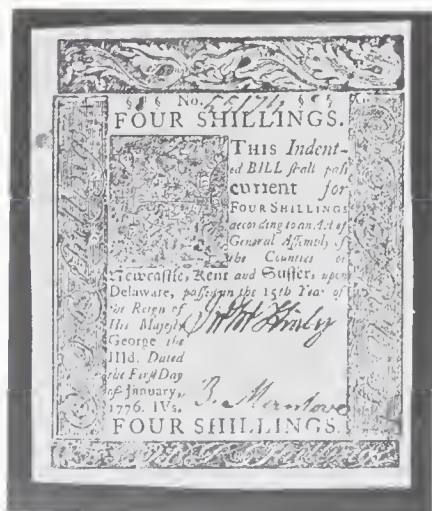 No. 55171,
FOUR SHILLINGS.
THIS Indent-
ed BILL ſhall paſs
current for
FOUR SHILLINGS
according to an Act of
General Aſſembly of
the Counties of
Newcaſtle, Kent and Suſſex, upon
Delaware, paſſed in the 15th Year of
the Reign of
His Majeſty
George the
IIId. Dated
the Firſt Day
of January,
1776. IVs.
B. Manlove
FOUR SHILLINGS.